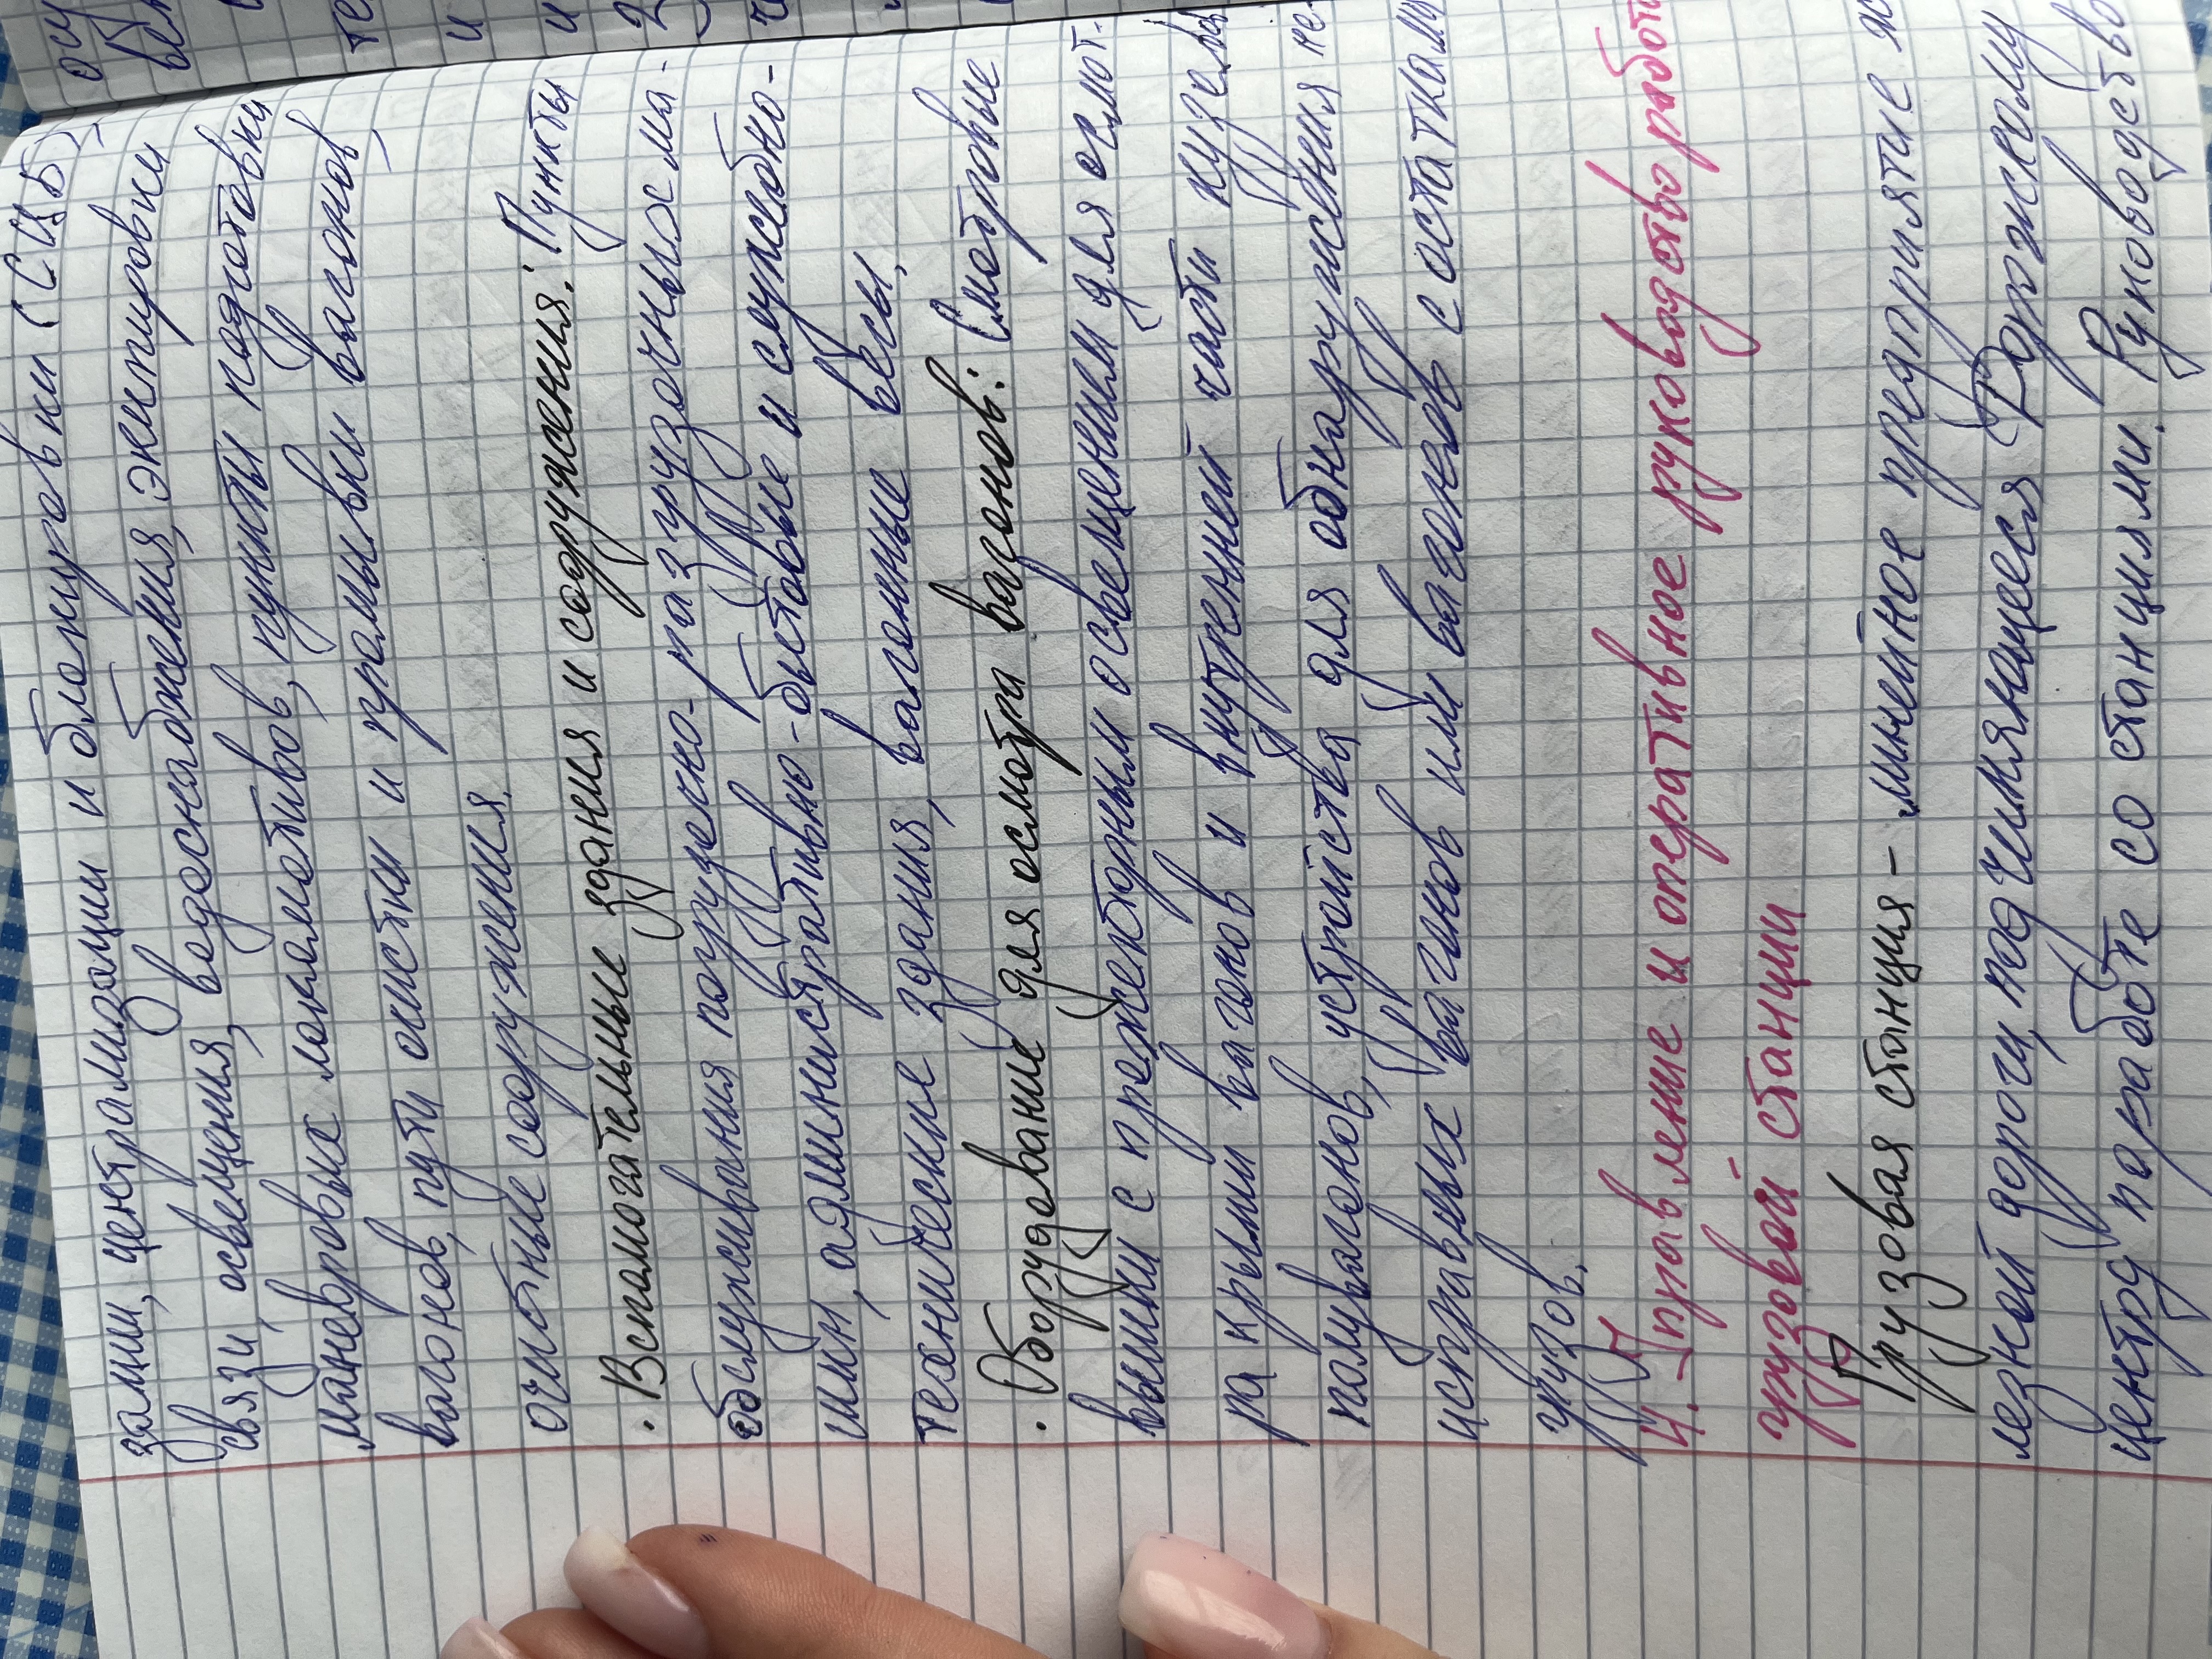 зации, централизации и блокировки (СЦБ),
связи, освещения, водоснабжения, экипировки
маневровых локомотивов, пункты подготовки
вагонов, пути очистки и промывки вагонов,
очистные сооружения.
· Вспомогательные здания и сооружения: Пункты
обслуживания погрузочно-разгрузочных ма-
шин, административно-бытовые и служебно-
технические здания, вагонные весы.
· Оборудование для осмотра вагонов: Смотровые
вышки с прожекторным освещением для осмот-
ра крыши вагонов и внутренней части кузова
полувагонов, устройства для обнаружения не-
исправных вагонов или вагонов с остатками
грузов.
4. Управление и оперативное руководство работой
грузовой станции
Грузовая станция - линейное предприятие же-
лезной дороги, подчиняющееся Дорожному
центру по работе со станциями. Руководство